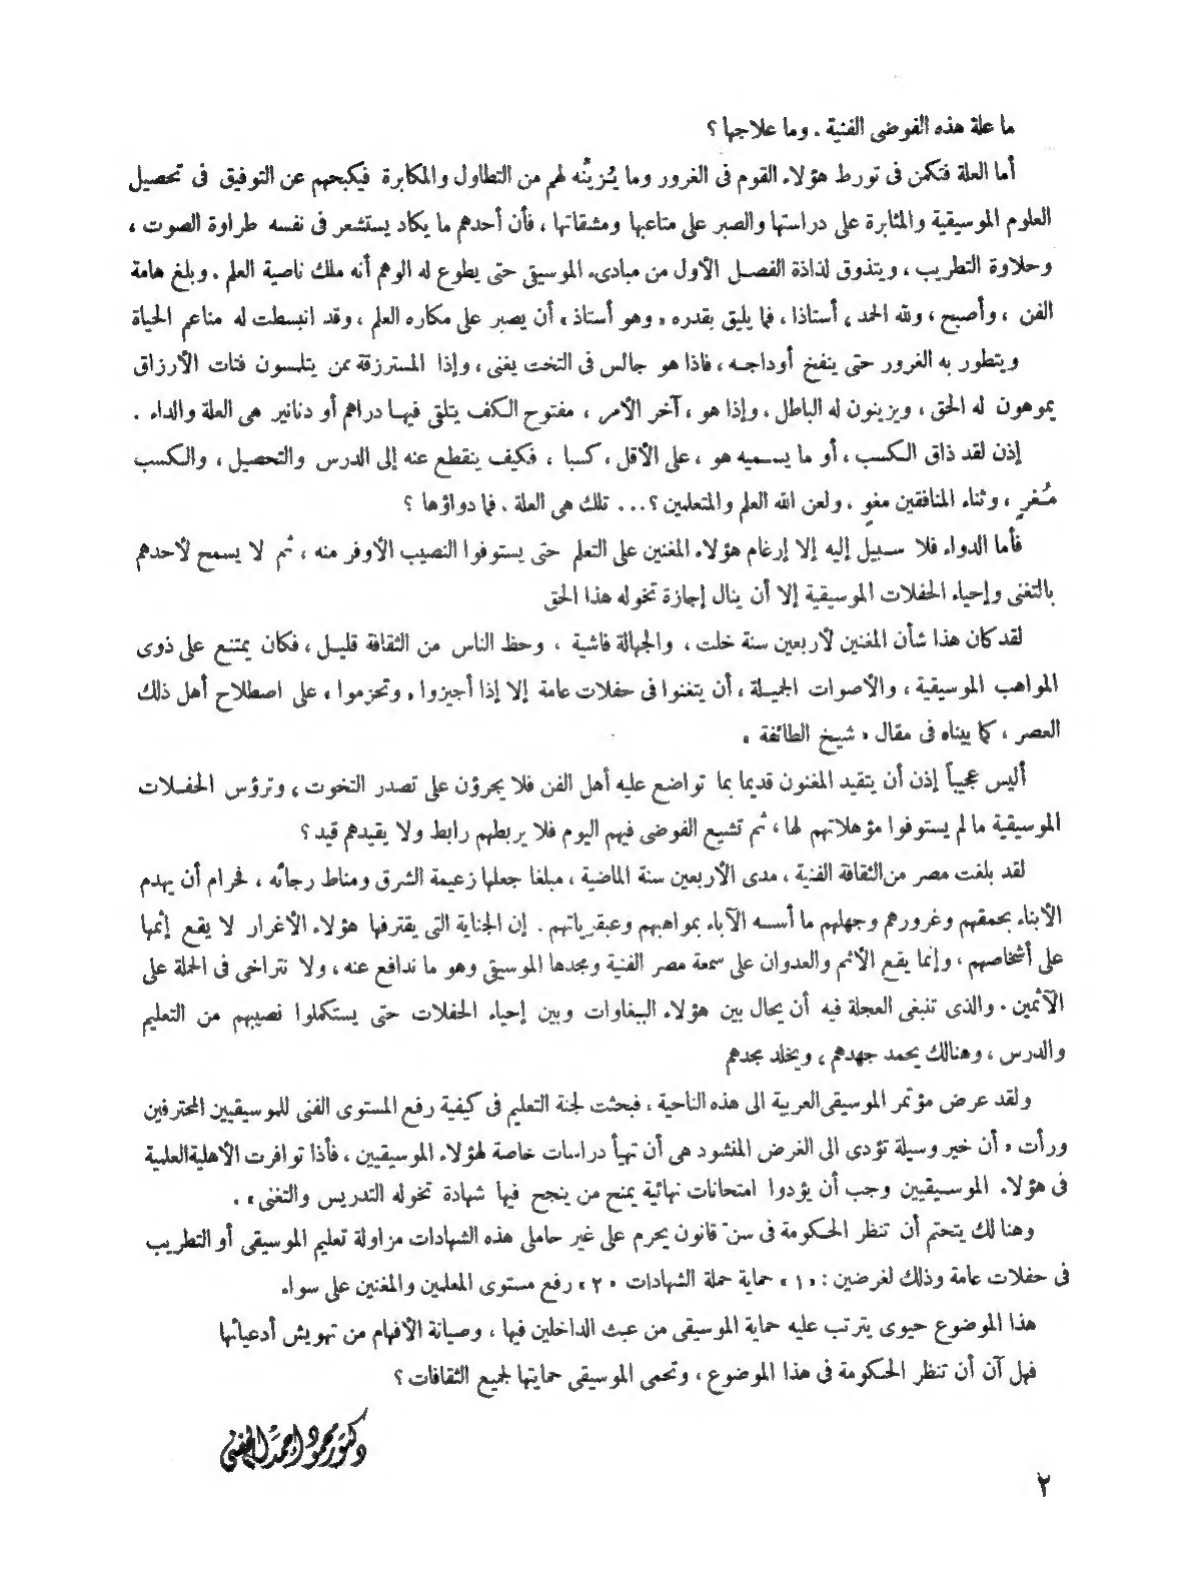 ما علة هذه الفوضى الفنية . وما علاجها ؟
أما العلة فتكمن فى تورط هؤلاء القوم فى الغرور وما يُزيِنُه لهم من التطاول والمكابرة فيكبحهم عن التوفيق فى تحصيل
العلوم الموسيقية والمثابرة على دراستها والصبر على متاعبها ومشقاتها ، فأن أحدهم ما يكاد يستشعر فى نفسه طراوة الصوت ،
وحلاوة التطريب ، ويتذوق لذاذة الفصل الأول من مبادىء الموسيقى حتى يطوع له الوهم أنه ملك ناصية العلم . وبلغ هامة
الفن ، وأصبح ، ولله الحمد ، أستاذا ، فما يليق بقدره « وهو أستاذ » أن يصبر على مكاره العلم ، وقد انبسطت له مناعم الحياة
ويتطور به الغرور حتى ينفخ أوداجه ، فاذا هو جالس فى التخت يغنى ، وإذا المسترزقة ممن يتلمسون فتات الأرزاق
يموهون له الحق ، ويزينون له الباطل . وإذا هو ، آخر الأمر ، مفتوح الكف يتلقى فيها دراهم أو دنانير هى العلة والداء .
إذن لقد ذاق الكسب ، أو ما يسميه هو ، على الأقل ، كسبا ، فكيف ينقطع عنه إلى الدرس والتحصيل ، والكسب
مُغرٍ ، وثناء المنافقين مغوٍ ، ولعن الله العلم والمتعلمين ؟ ... تلك هى العلة . فما دواؤها ؟
فأما الدواء فلا سبيل إليه إلا إرغام هؤلاء المغنين على التعلم حتى يستوفوا النصيب الأوفر منه ، ثم لا يسمح لأحدهم
بالتغنى وإحياء الحفلات الموسيقية إلا أن ينال إجازة تخوله هذا الحق
لقد كان هذا شأن المغنين لأربعين سنة خلت ، والجهالة فاشية ، وحظ الناس من الثقافة قليل ، فكان يمتنع على ذوى
المواهب الموسيقية ، والأصوات الجميلة ، أن يتغنوا فى حفلات عامة إلا إذا أجيزوا « وتحزموا » على اصطلاح أهل ذلك
العصر ، كما بيناه فى مقال « شيخ الطائفة »
أليس عجيباً إذن أن يتقيد المغنون قديما بما تواضع عليه أهل الفن فلا يجرؤن على تصدر التخوت ، وترؤس الحفلات
الموسيقية ما لم يستوفوا مؤهلاتهم لها ، ثم تشيع الفوضى فيهم اليوم فلا يربطهم رابط ولا يقيدهم قيد ؟
لقد بلغت مصر من الثقافة الفنية ، مدى الأربعين سنة الماضية ، مبلغا جعلها زعيمة الشرق ومناط رجائه ، فحرام أن يهدم
الأبناء بحمقهم وغرورهم وجهلهم ما أسسه الآباء بمواهبهم وعبقرياتهم . إن الجناية التى يقترفها هؤلاء الأغرار لا يقع إثمها
على أشخاصهم ، وإنما يقع الأثم والعدوان على سمعة مصر الفنية ومجدها الموسيقى وهو ما ندافع عنه ، ولا نتراخى فى الحملة على
الآثمين . والذى تنبغى العجلة فيه أن يحال بين هؤلاء الببغاوات وبين إحياء الحفلات حتى يستكملوا نصيبهم من التعليم
والدرس ، وهنالك يحمد جهدهم ، ويخلد مجدهم
ولقد عرض مؤتمر الموسيقى العربية الى هذه الناحية ، فبحثت لجنة التعليم فى كيفية رفع المستوى الفنى للموسيقيين المحترفين
ورأت « أن خير وسيلة تؤدى الى الغرض المنشود هى أن تهيأ دراسات خاصة لهؤلاء الموسيقيين ، فأذا توافرت الأهلية العلمية
فى هؤلاء الموسيقيين وجب أن يؤدوا امتحانات نهائية يمنح من ينجح فيها شهادة تخوله التدريس والتغنى » .
وهنا لك يتحتم أن تنظر الحكومة فى سن قانون يحرم على غير حاملى هذه الشهادات مزاولة تعليم الموسيقى أو التطريب
فى حفلات عامة وذلك لغرضين : « ١ » حماية حملة الشهادات « ٢ » رفع مستوى المعلمين والمغنين على سواء
هذا الموضوع حيوى يترتب عليه حماية الموسيقى من عبث الداخلين فيها ، وصيانة الأفهام من تهويش أدعيائها
فهل آن أن تنظر الحكومة فى هذا الموضوع ، وتحمى الموسيقى حمايتها لجميع الثقافات ؟
دكتور محمود أحمد الحفنى
٢